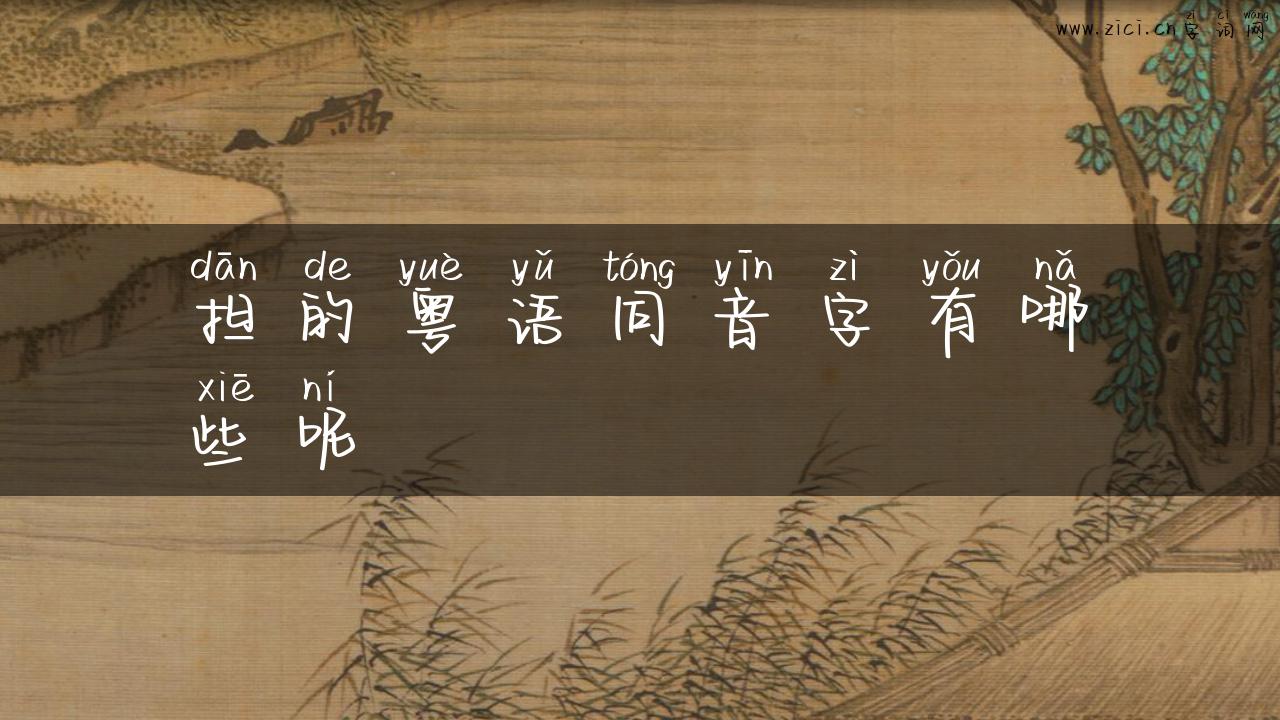 zì cí wǎng
www.zici.cn字词网
dān de yuè yǔ tóng yīn zì yǒu nǎ
担的粤语同音字有哪
xiē ní
些呢